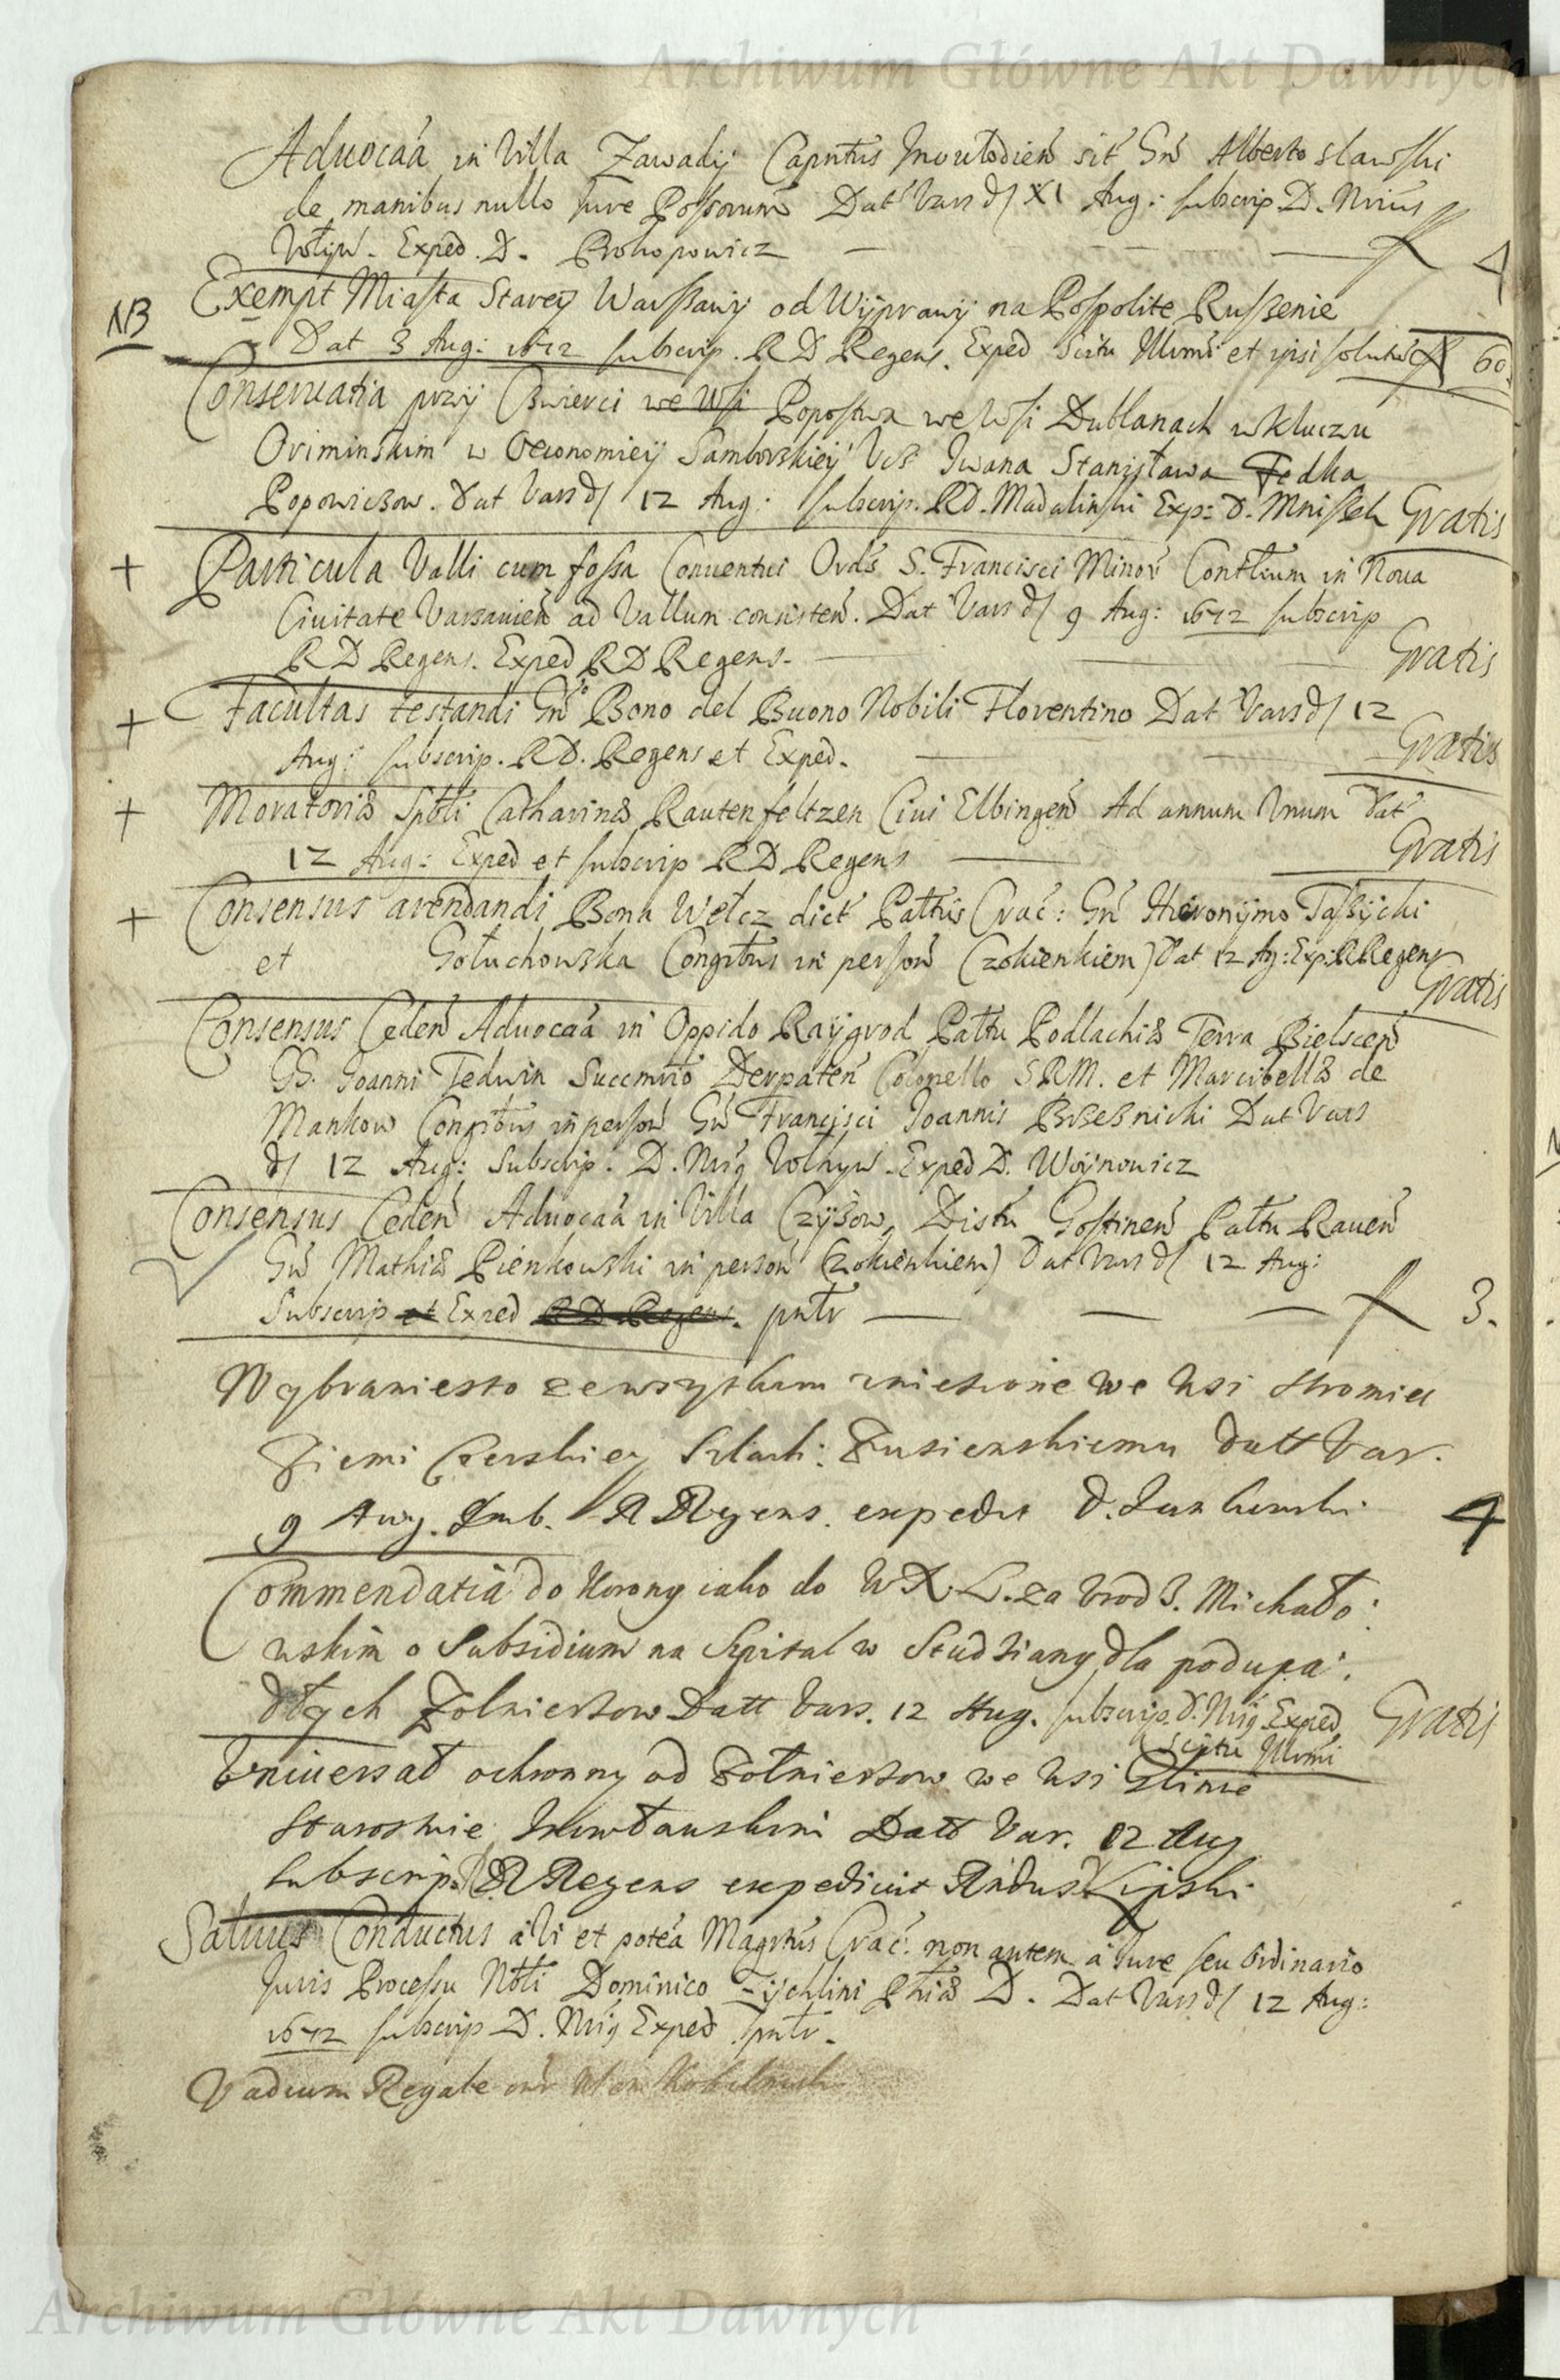 Archiwum Główne Akt Dawnych
Aduocaá in Villa Zawady Capntus Inowłodień sit Gń Alberto Slawski
de manibus nullo Jure Possorum Dat Vars d XI Aug: subscrip D. Nrius
Volyń. Exped. D. Prokopowicz 4
NB Exempt Miasta Starey Warszawy od Wyprawy na Pospolite Ruszenie
Dat 3 Aug: 1672 subscrip. RD Regens. Exped Scitu Illrmi et ipsi solutus 60
Conseruatia przy Cwierci we Wsi Popostwa we Wsi Dublanach w kluczu
Oriminskim w Oeconomiey Samborskiey Iwana Stanisława Fedka
Popowiczow. Dat Vars d 12 Aug: subscrip. RD. Madalinski Exp: D. Mniszek Gratis
+ Particula Valli cum fossa Conuentui Ords S. Francisci Minor Contlium in Noua
Ciuitate Varsauień ad Vallum consisteń. Dat Vars d 9 Aug: 1672 subscrip
RD Regens. Exped RD Regens. Gratis
+ Facultas testandi Gń Bono del Buono Nobili Florentino Dat Vars d 12
Aug: subscrip. RD. Regens et Exped. Gratis
+ Moratoriæ Spbli Catharinæ Rautenfeltzen Ciui Elbingeń Ad annum Vnum Dat
12 Aug: Exped et subscrip RD Regens Gratis
+ Consensus arendandi Bona Wełcz dict Pałtus Crac: Gń Hieronymo Taszycki
et Gołuchowska Congtbus in persoń (zokienkiem) Dat 12 Ag: Exp: RRegens
Gratis
Consensus Cedeń Aduocaá in Oppido Raygrod Pałtu Podlachiæ Terra Bielsceń
GG. Joanni Tedwin Succmrio Derpateń Colonello SRM. et Marcibellæ de
Mankow Congtbus in persoń Gń Francisci Joannis Brzeznicki Dat Vars
d 12 Aug: Subscrip. D. Nrig Vołhyń. Exped D. Woynowicz
Consensus Cedeń Aduocaá in Villa Czyżow, Distu Gostineń Pałtu Raueń
Gń Mathiæ Pieńkowski in persoń (zokienkiem) Dat Vars d 12 Aug:
Subscrip et Exped RD Regens. pntr 3.
Wybraniesto ze wszytkim zniesione we Wsi Stromiec
Ziemi Czerskiey Szlach: Dat Var.
9 Aug. Sub. R Regens. expedit D. 4
Commendatia do Korony iako do W X L. za Vrod J. Michało:
wskim o Subsidium na Szpital w Studziany dla podupa:
dłych Zołnierzow Datt Vars. 12 Aug. subscrip. D. Nrig. Exped Gratis
Scitu Illrmi
Vniuersał ochronny od Zołnierzow we Wsi
Starostwie Datt Var. 12 Aug
subscrip. R Regens expediuit Rndus Lipski
Saluus Conductus à Vi et poteá Magrtus Crac. non autem à Jure seu Ordinario
Juris Processu Nbli Dominico Phiæ D. Dat Vars d 12 Aug:
1672 subscrip D. Nrig Exped pntr.
Vadium Regale
Archiwum Główne Akt Dawnych